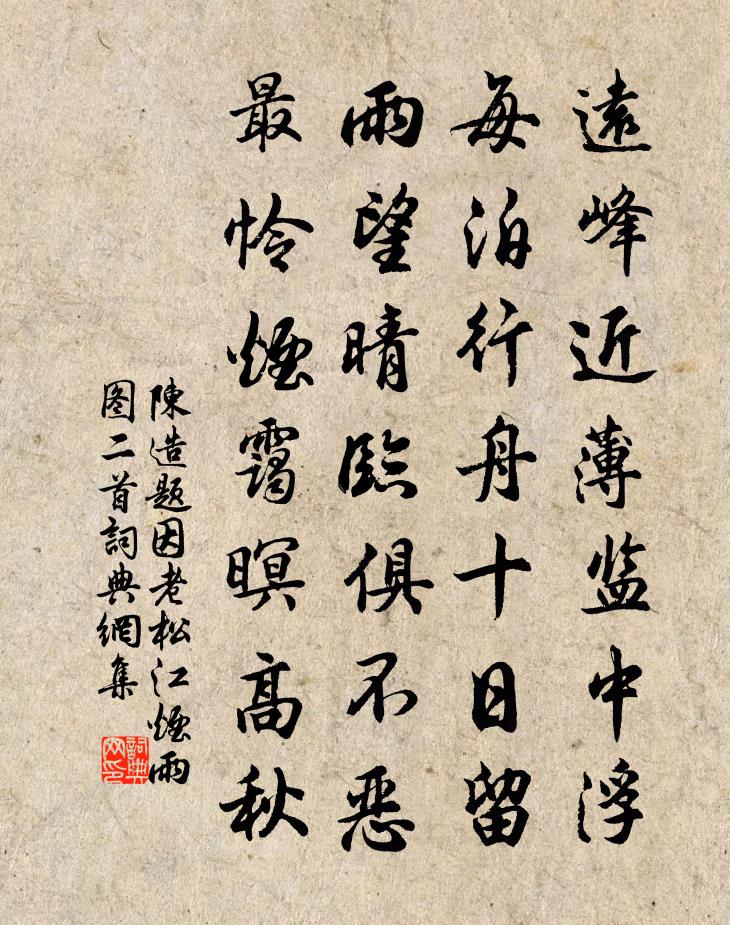 遠峰近薄监中浮
每泊行舟十日留
雨望晴臨俱不恶
最怜煙靄暝高秋
陳造題因老松江煙雨
图二首詞典網集
詞典网印